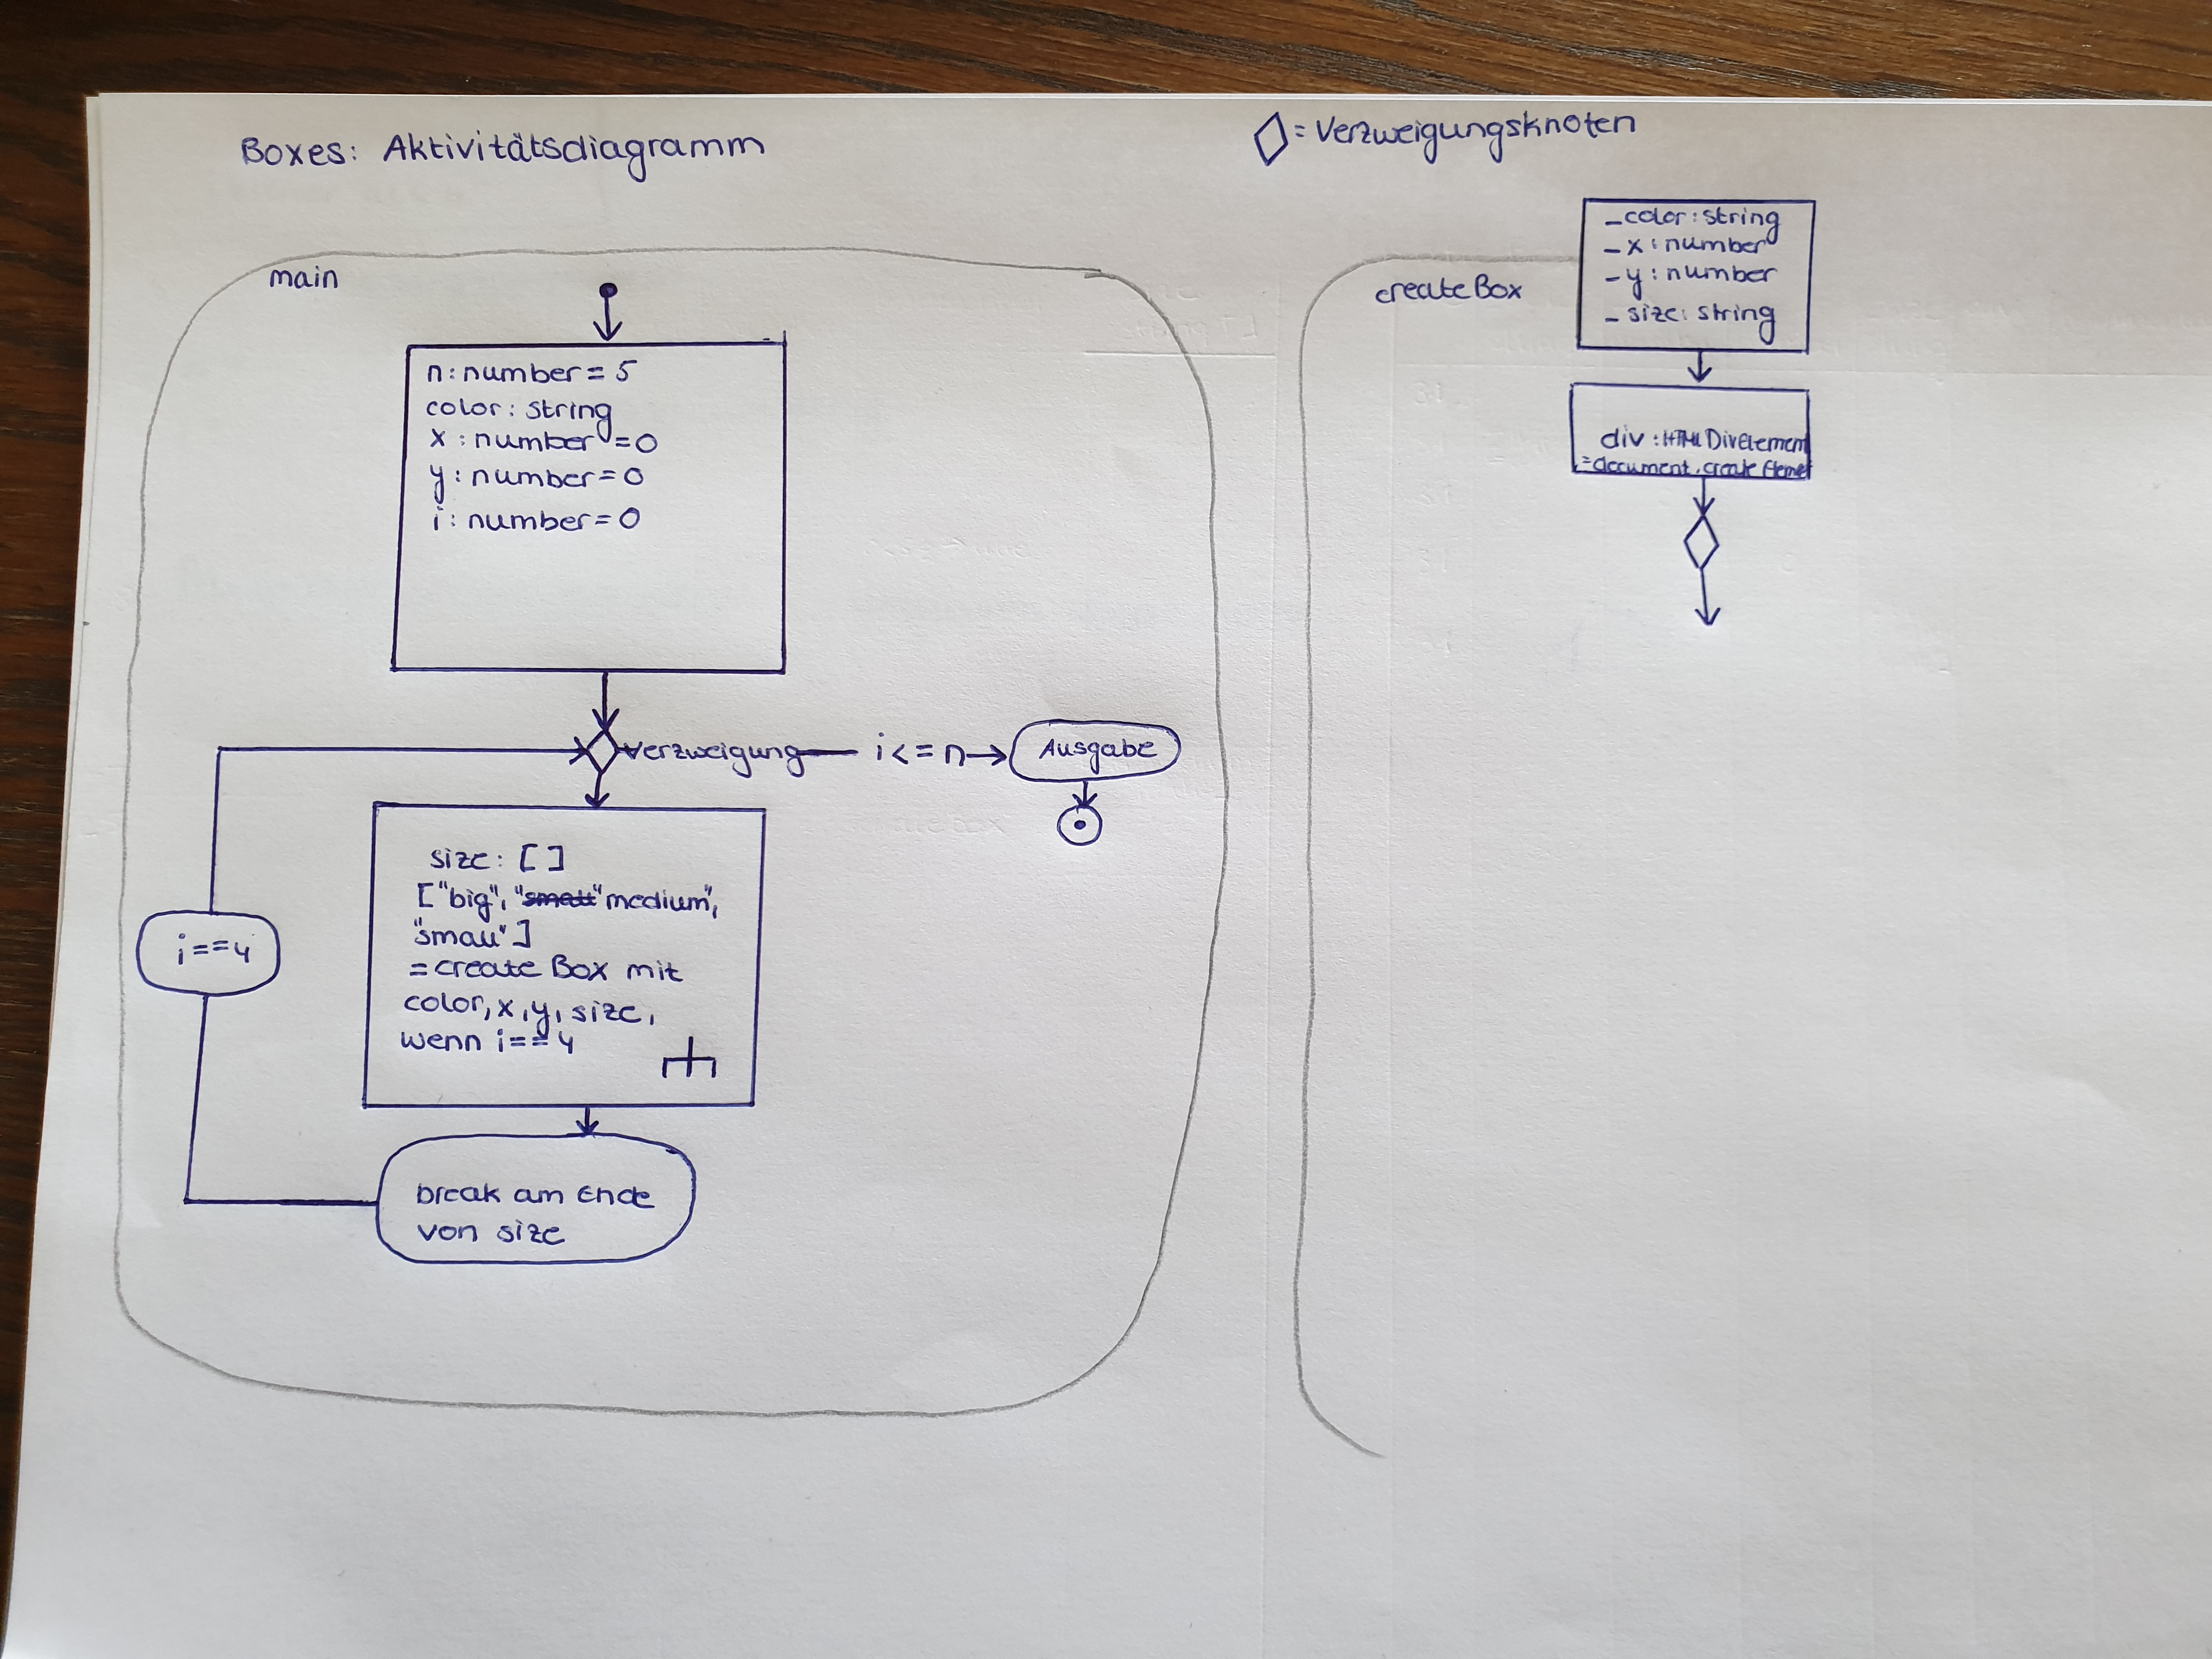 Boxes: Aktivitätsdiagramm
= Verzweigungsknoten
main
n: number = 5
color: string
x: number = 0
y: number = 0
i: number = 0
Verzweigung
i <= n
Ausgabe
size: [ ]
["big", "small" medium",
"small"]
= create Box mit
color, x, y, size,
wenn i == 4
i == 4
break am Ende
von size
createBox
_color: string
_x: number
_y: number
_size: string
div: HTML DivElement
= document.create Element